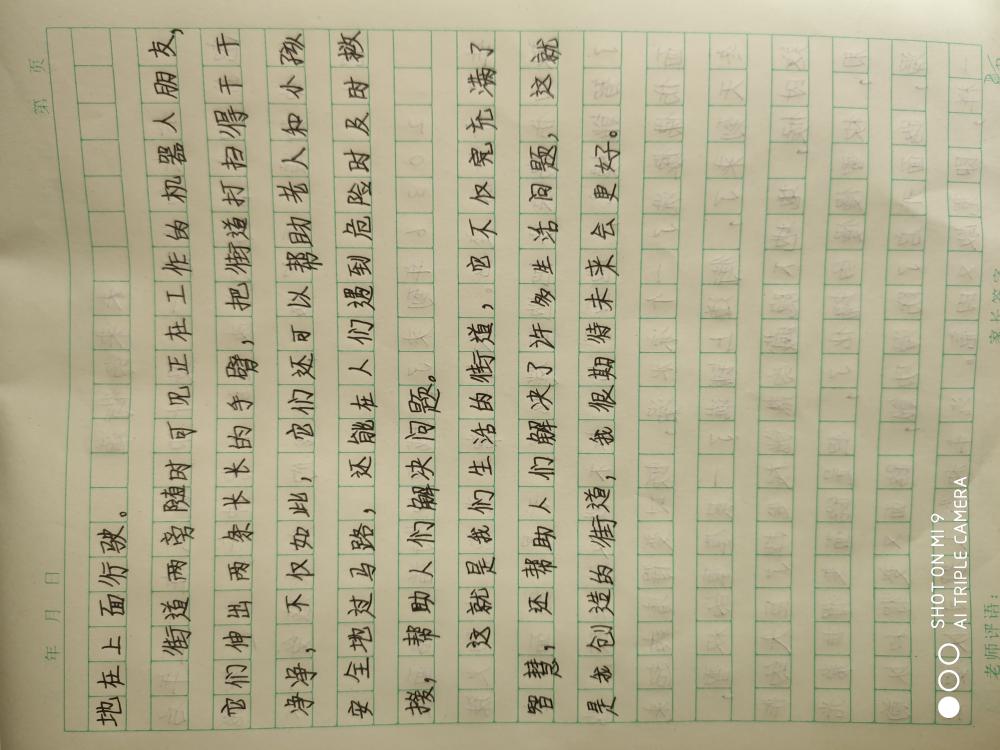 第 页
年 月 日
地在上面行驶。
街道两旁随时可见正在工作的机器人朋友,
它们伸出两条长长的手臂,把街道打扫得干干
净净,不仅如此,它们还可以帮助老人和小孩
安全地过马路,还能在人们遇到危险时及时救
援,帮助人们解决问题。
这就是我们生活的街道,它不仅充满了
智慧,还帮助人们解决了许多生活问题,这就
是我创造的街道,我很期待未来会更好。
老师评语:
家长签字
SHOT ON MI 9
AI TRIPLE CAMERA